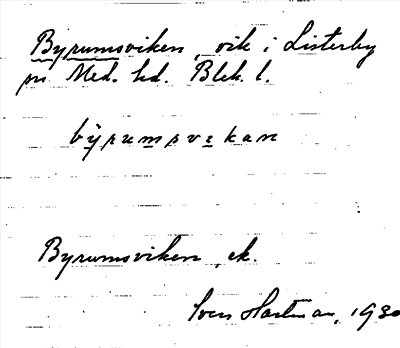 Byrumsviken, vik i Listerby
sn Med. hd. Blek. l.
by̆rumsvikan
Byrumsviken, ek.
Sven Hartman, 1930